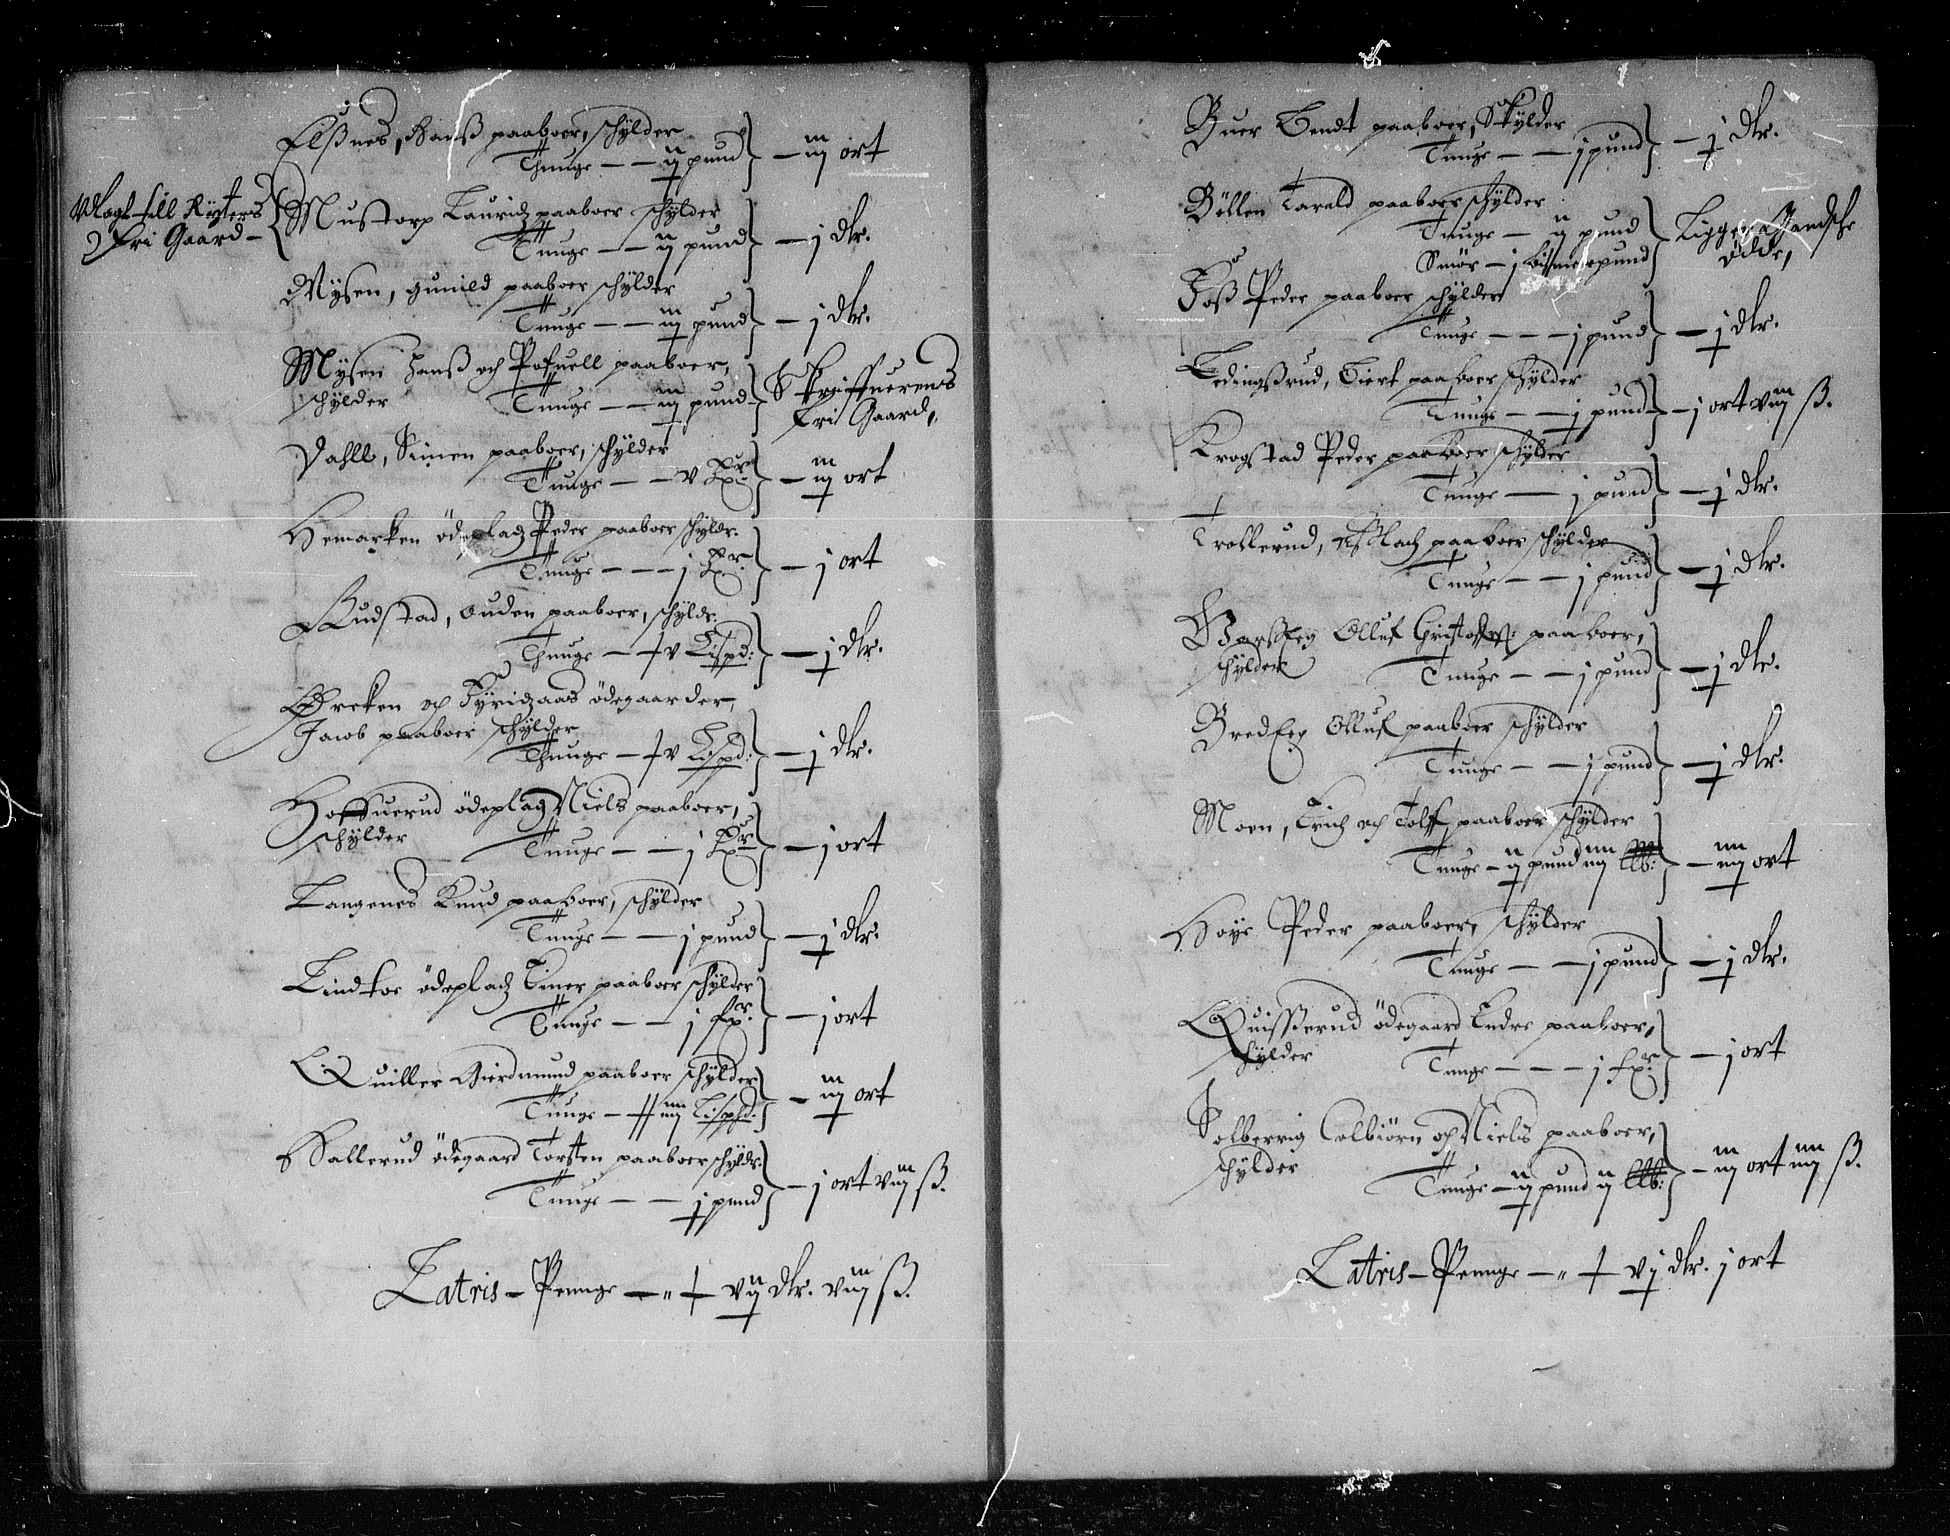 Elßnes, Hanß paaboer, schylder
Thunge — — ij pund — iij ort
Udlagt till Rytters
Fri Gaard —
Mustorp Lauridz paaboer schylder
Tunge — — ij pund — j dlr.
Mysen, gunild paaboer schylder
Tunge — — iij pund — j dlr.
Mysen Hanß och Pofuell paaboer,
schylder Tunge — — iij pund
Skriffuerens
Fri Gaard,
Dahll, Simen paaboer, schylder
Tunge — — v — iij ort
Hemarken ödepladz Peder paaboer schyldr.
Tunge — — — j — j ort
Rudstad, Ouden paaboer, schyldr.
Thunge — v Lispd: — j dlr.
och ödegaarder,
Jacob paaboer schylder
Thunge — v Lispd: — j dlr.
Hoffuerud ödepladz Niels paaboer,
schylder Tunge — — j — j ort
Langenes Knud paaboer, schylder
Tunge — — j pund — j dlr.
Lindtoe ödepladz Einer paaboer schylder
Tunge — — j — j ort
Quiller Gierdmund paaboer schylder
Tunge — iiij Lispd: — iij ort
Hallerud ödegaard Torsten paaboer schyldr.
Tunge — — j pund — j ort viij ß.
Latris — Penge — „ — vij dlr. viij ß.
Buer Bendt paaboer, Skylder
Tunge — — j pund — j dlr.
Böllen Tarald paaboer schylder
Tunge — ij pund
Smör — j bismerpund
Ligger Gandsche
Ödde,
Foß Peder paaboer schylder
Tunge — — — j pund — j dlr.
Ledingßrud, Siert paaboer schylder
Tunge — — j pund — j ort viij ß.
Krogstad Peder paaboer schylder
Tunge — — j pund — j dlr.
Trollerud, Aßlach paaboer schylder
Tunge — — j pund — j dlr.
Olluf Christoffers: paaboer,
schylder Tunge — — j pund — j dlr.
Olluf paaboer schylder
Tunge — — j pund — j dlr.
Moen, Erich och Tolff paaboer schylder
Tunge — ij pund iiij — iiij ort
Höye Peder paaboer, schylder
Tunge — — j pund — j dlr.
Quisserud ödegaard Endre paaboer,
schylder Tunge — — — j — j ort
Solberrig Colbiörn och Niels paaboer,
schylder Tunge — ij pund ij — iij ort iiij ß.
Latris — Penge — „ — vj dlr. j ort